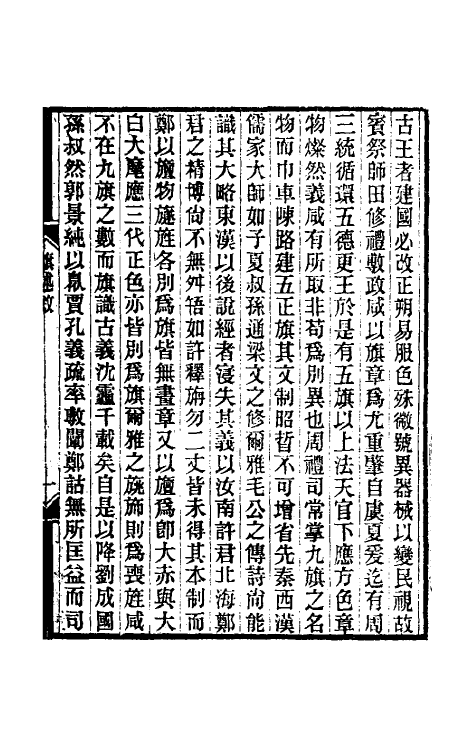 古王者建國必改正朔易服色殊徽號異器械以變民視故
賓祭師田修禮敷政咸以旗章爲尤重肇自虞夏爰迄有周
三統循環五德更王於是有五旗以上法天官下應方色章
物燦然義咸有所取非苟爲別異也周禮司常掌九旗之名
物而巾車陳路建五正旗其文制昭晳不可增省先秦西漢
儒家大師如子夏叔孫通梁文之修爾雅毛公之傳詩尚能
識其大略東漢以後說經者寖失其義以汝南許君北海鄭
君之精博尚不無舛啎如許釋旃勿二文皆未得其本制而
鄭以旜物旞旌各別爲旗皆無畫章又以旜爲卽大赤與大
白大麾應三代正色亦皆別爲旗爾雅之旐斾則爲喪旌咸
不在九旗之數而旗識古義沈霾千載矣自是以降劉成國
孫叔然郭景純以臮賈孔義疏率敷闡鄭詁無所匡益而司
九旗古義述敘
一